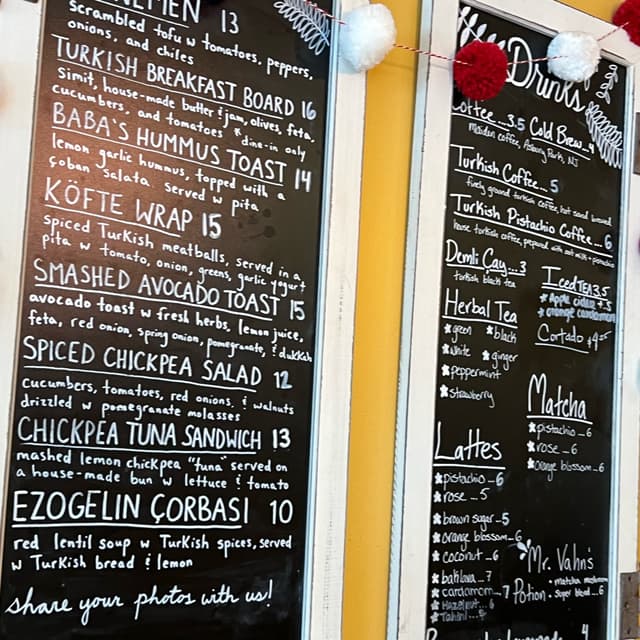 13
Scrambled tofu w tomatoes, peppers,
onions, and chiles
TURKISH BREAKFAST BOARD 16
Simit, house-made butter & jam, olives, feta,
cucumbers, and tomatoes * dine-in only
BABA'S HUMMUS TOAST 14
lemon garlic hummus, topped with a
çoban salata. served w pita
KÖFTE WRAP 15
spiced Turkish meatballs, served in a
pita w tomato, onion, greens, garlic yogurt
SMASHED AVOCADO TOAST 15
avocado toast w fresh herbs, lemon juice,
feta, red onion, spring onion, pomegranate, & dukkah
SPICED CHICKPEA SALAD 12
cucumbers, tomatoes, red onions, & walnuts
drizzled w pomegranate molasses
CHICKPEA TUNA SANDWICH 13
mashed lemon chickpea "tuna" served on
a house-made bun w lettuce & tomato
EZOGELIN ÇORBASI 10
red lentil soup w Turkish spices, served
w Turkish bread & lemon
share your photos with us!
Drinks
Coffee...3.5 Cold Brew...4
maiden coffee, Asbury Park, NJ
Turkish Coffee...5
finely ground turkish coffee, hot sand brewed
Turkish Pistachio Coffee...6
house turkish coffee, prepared with oat milk + pistachio
Demli Çay...3
turkish black tea
Iced Tea 3.5
* Apple cider +.5
* orange cardamom
Herbal Tea
* green * black
* white * ginger
* peppermint
* strawberry
Cortado * 4
Matcha
* pistachio...6
* rose...6
* orange blossom...6
Lattes
* pistachio...6
* rose...5
* brown sugar...5
* orange blossom...6
* coconut...6
* baklava...7
* cardamom...7
* Hazelnut...6
* Tahini...
* Mr. Vahn's
Potion
• matcha mushroom
• super blend...6
4